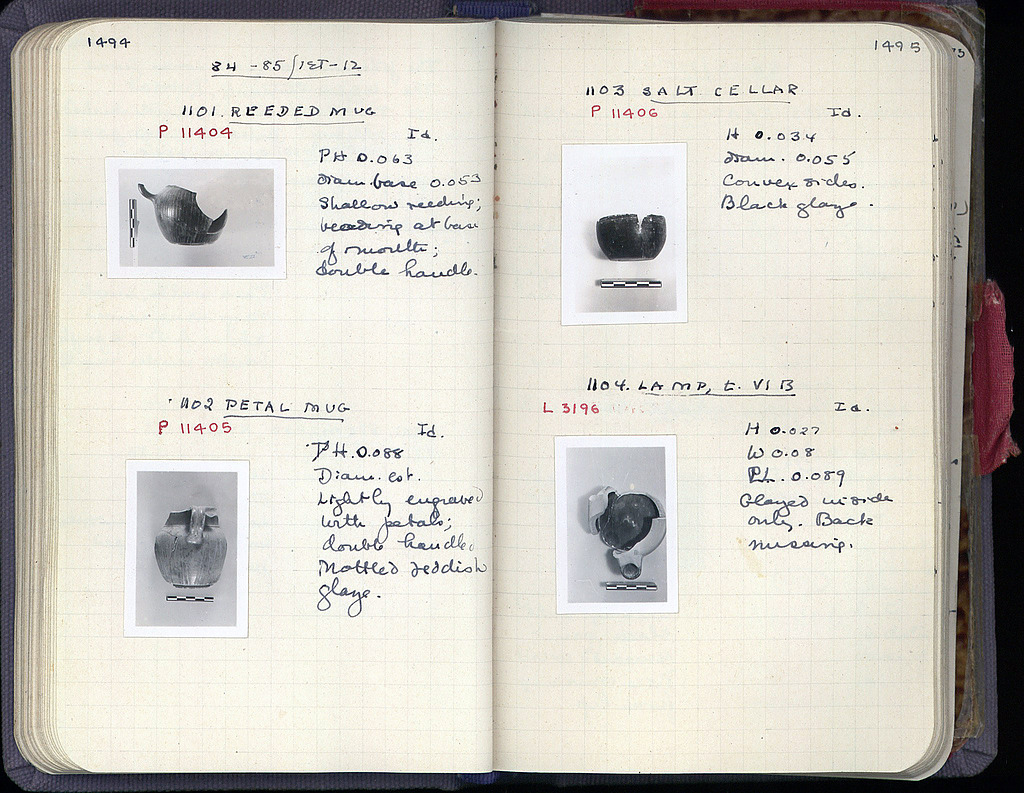 1494
84 -85/ΙΣΤ-12
1101. REEDED MUG
P 11404
Id.
PH 0.063
Diam. base 0.053
Shallow reeding;
beading at base
of mouth;
double handle.
1102 PETAL MUG
P 11405
Id.
PH. 0.088
Diam. est.
Lightly engraved
with petals;
double handle.
Mottled reddish
glaze.
1495
1103 SALT CELLAR
P 11406
Id.
H 0.034
Diam. 0.055
Convex sides.
Black glaze.
1104. LAMP, t. VI B
L 3196
Id.
H 0.027
W 0.08
PL. 0.089
Glazed inside
only. Back
missing.